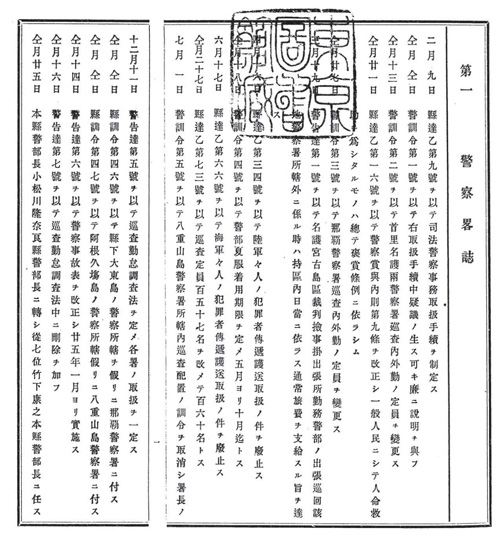 第一 警察畧誌
二月九日 縣達乙第九號ヲ以テ司法警察事務取扱手續ヲ制定ス
仝月仝日 警訓令第一號ヲ以テ右取扱手續中疑議ノ生ス可キ廉ニ說明ヲ與フ
仝月十三日 警訓令第二號ヲ以テ首里名護兩警察署巡査內外勤ノ定員ヲ變更ス
仝月廿一日 縣達乙第一六號ヲ以テ警察賞與內則第九條ヲ改正シ一般人民ニシテ人命救
助ヲ爲シタルモノハ總テ褒賞條例ニ依ラシム
月廿七日 警訓令第三號ヲ以テ那覇警察署巡査內外勤ノ定員ヲ變更ス
月十九日 警告達第一號ヲ以テ名護宮古島區裁判檢事掛出張所勤務警部ノ出張巡回該
地警察署所轄外ニ係ル時ハ持區內日當ニ依ラス通常旅費ヲ支給スル旨ヲ達
ス
月六日 縣達乙第三四號ヲ以テ陸軍々人ノ犯罪者傳遞護送取扱ノ件ヲ廢止ス
仝月十八日 警訓令第四號ヲ以テ警部夏服着用期限ヲ定メ五月ヨリ十月迄トス
六月十七日 縣達乙第六號ヲ以テ海軍々人ノ犯罪者傳遞護送取扱ノ件ヲ廢止ス
仝月二十七日 縣達乙第七三號ヲ以テ巡査定員百五十七名ヲ改メテ百六十名トス
七月一日 警訓令第五號ヲ以テ八重山島警察署所轄內巡査配置ノ訓令ヲ取消シ署長ノ
十二月十一日 警告達第五號ヲ以テ巡査勤怠調査法ヲ定メ各署ノ取扱ヲ一定ス
仝月仝日 縣訓令第四六號ヲ以テ縣下大東島ノ警察所轄ヲ假リニ那覇警察署ニ付ス
仝月仝日 縣訓令第四七號ヲ以テ阿根久塲島ノ警察所轄假リニ八重山島警察署ニ付ス
仝月十四日 警告達第六號ヲ以テ警察事故表ヲ改正シ廿五年一月ヨリ實施ス
仝月十六日 警告達第七號ヲ以テ巡査勤怠調査法中ニ刪除ヲ加フ
仝月廿五日 本縣警部長小松川隆奈良縣警部長ニ轉シ從七位竹下康之本縣警部長ニ任ス